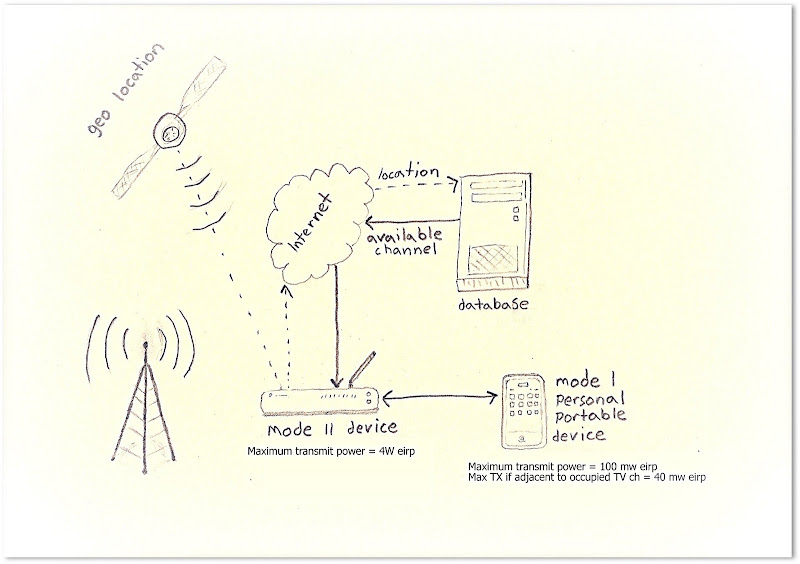 geo location
Internet
location
available
channel
database
mode II device
Maximum transmit power = 4W eirp
mode I
personal
portable
device
Maximum transmit power = 100 mw eirp
Max TX if adjacent to occupied TV ch = 40 mw eirp